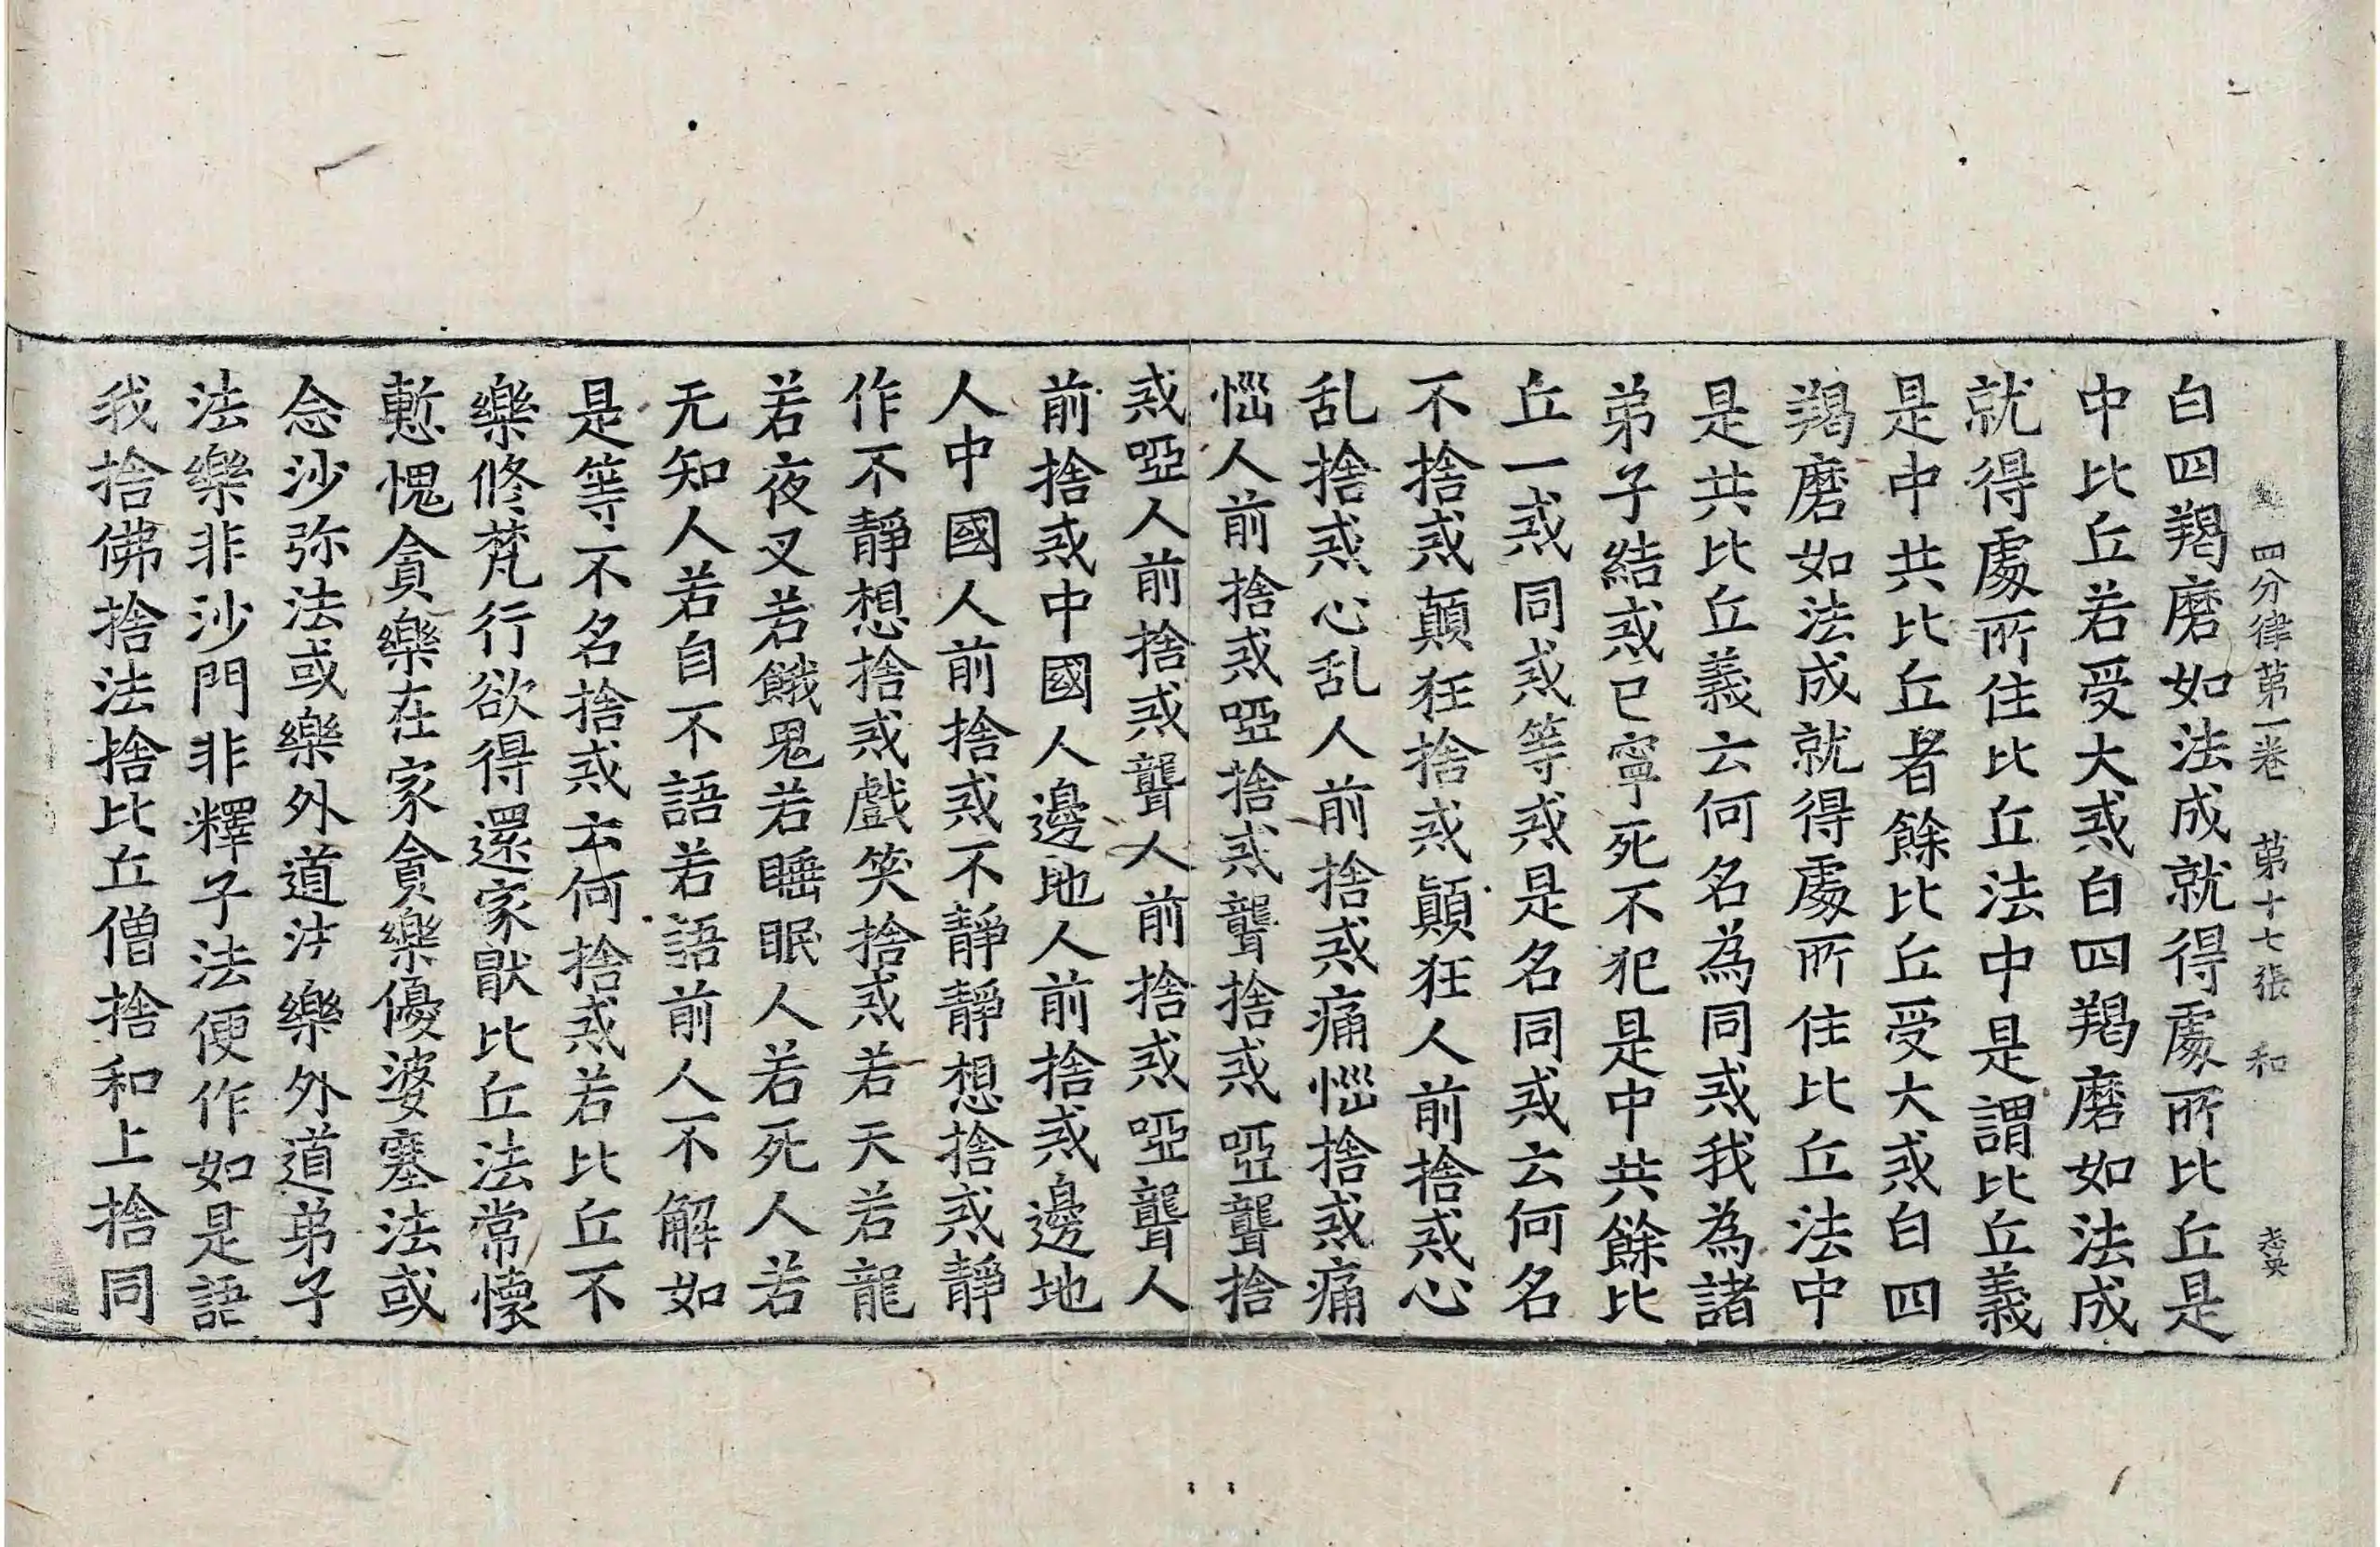 四分律第一卷 第十七張 和
白四羯磨如法成就得處所比丘是
中比丘若受大戒白四羯磨如法成
就得處所住比丘法中是謂比丘義
是中共比丘者餘比丘受大戒白四
羯磨如法成就得處所住比丘法中
是共比丘義云何名為同戒我為諸
弟子結戒已寧死不犯是中共餘比
丘一戒同戒等戒是名同戒云何名
不捨戒顛狂捨戒顛狂人前捨戒心
乱捨戒心乱人前捨戒痛惱捨戒痛
惱人前捨戒啞捨戒聾捨戒啞聾捨
戒啞人前捨戒聾人前捨戒啞聾人
前捨戒中國人邊地人前捨戒邊地
人中國人前捨戒不靜靜想捨戒靜
作不靜想捨戒戲笑捨戒若天若龍
若夜叉若餓鬼若睡眠人若死人若
无知人若自不語若語前人不解如
是等不名捨戒云何捨戒若比丘不
樂修梵行欲得還家猒比丘法常懷
慙愧貪樂在家貪樂優婆塞法或
念沙弥法或樂外道法樂外道弟子
法樂非沙門非釋子法便作如是語
我捨佛捨法捨比丘僧捨和上捨同